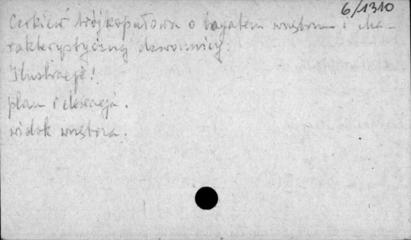 6/1310
Cerkiew trójkopułowa o bogatem wnętrzu i cha-
rakterystycznej dzwonnicy.
Ilustracje:
plan i elewacja.
widok wnętrza.